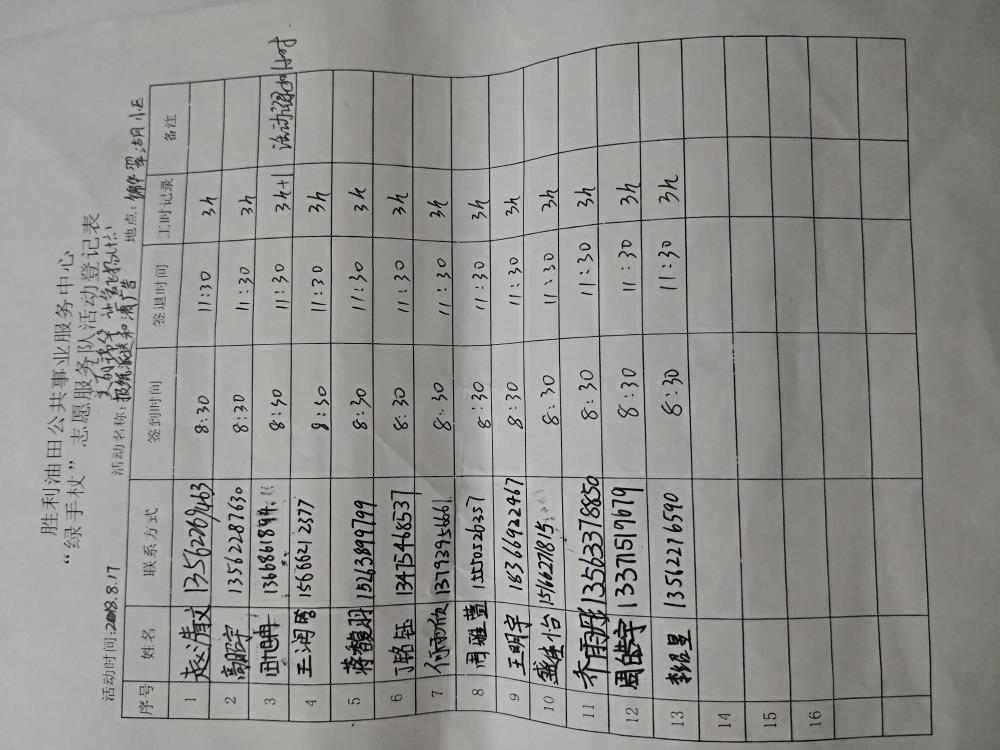 胜利油田公共事业服务中心
“绿手杖”志愿服务队活动登记表
活动时间:2018.8.17 活动名称:报纸派送和清广告 地点:锦华翠湖小区
序号 姓名 联系方式 签到时间 签退时间 工时记录 备注
1 赵清文 13562269463 8:30 11:30 3h
2 高聪宇 13562287630 8:30 11:30 3h
3 田旭冉 8:30 11:30 3h+1
4 王润唇 15666212377 8:30 11:30 3h
5 蒋馥羽 15263899799 8:30 11:30 3h
6 丁铭钰 13475468537 8:30 11:30 3h
7 付雨欣 13793956661 8:30 11:30 3h
8 周雅萱 8:30 11:30 3h
9 王明宇 18366922467 8:30 11:30 3h
10 8:30 11:30 3h
11 齐雨彤 13563378850 8:30 11:30 3h
12 13371519679 8:30 11:30 3h
13 13562216590 8:30 11:30 3h
14
15
16